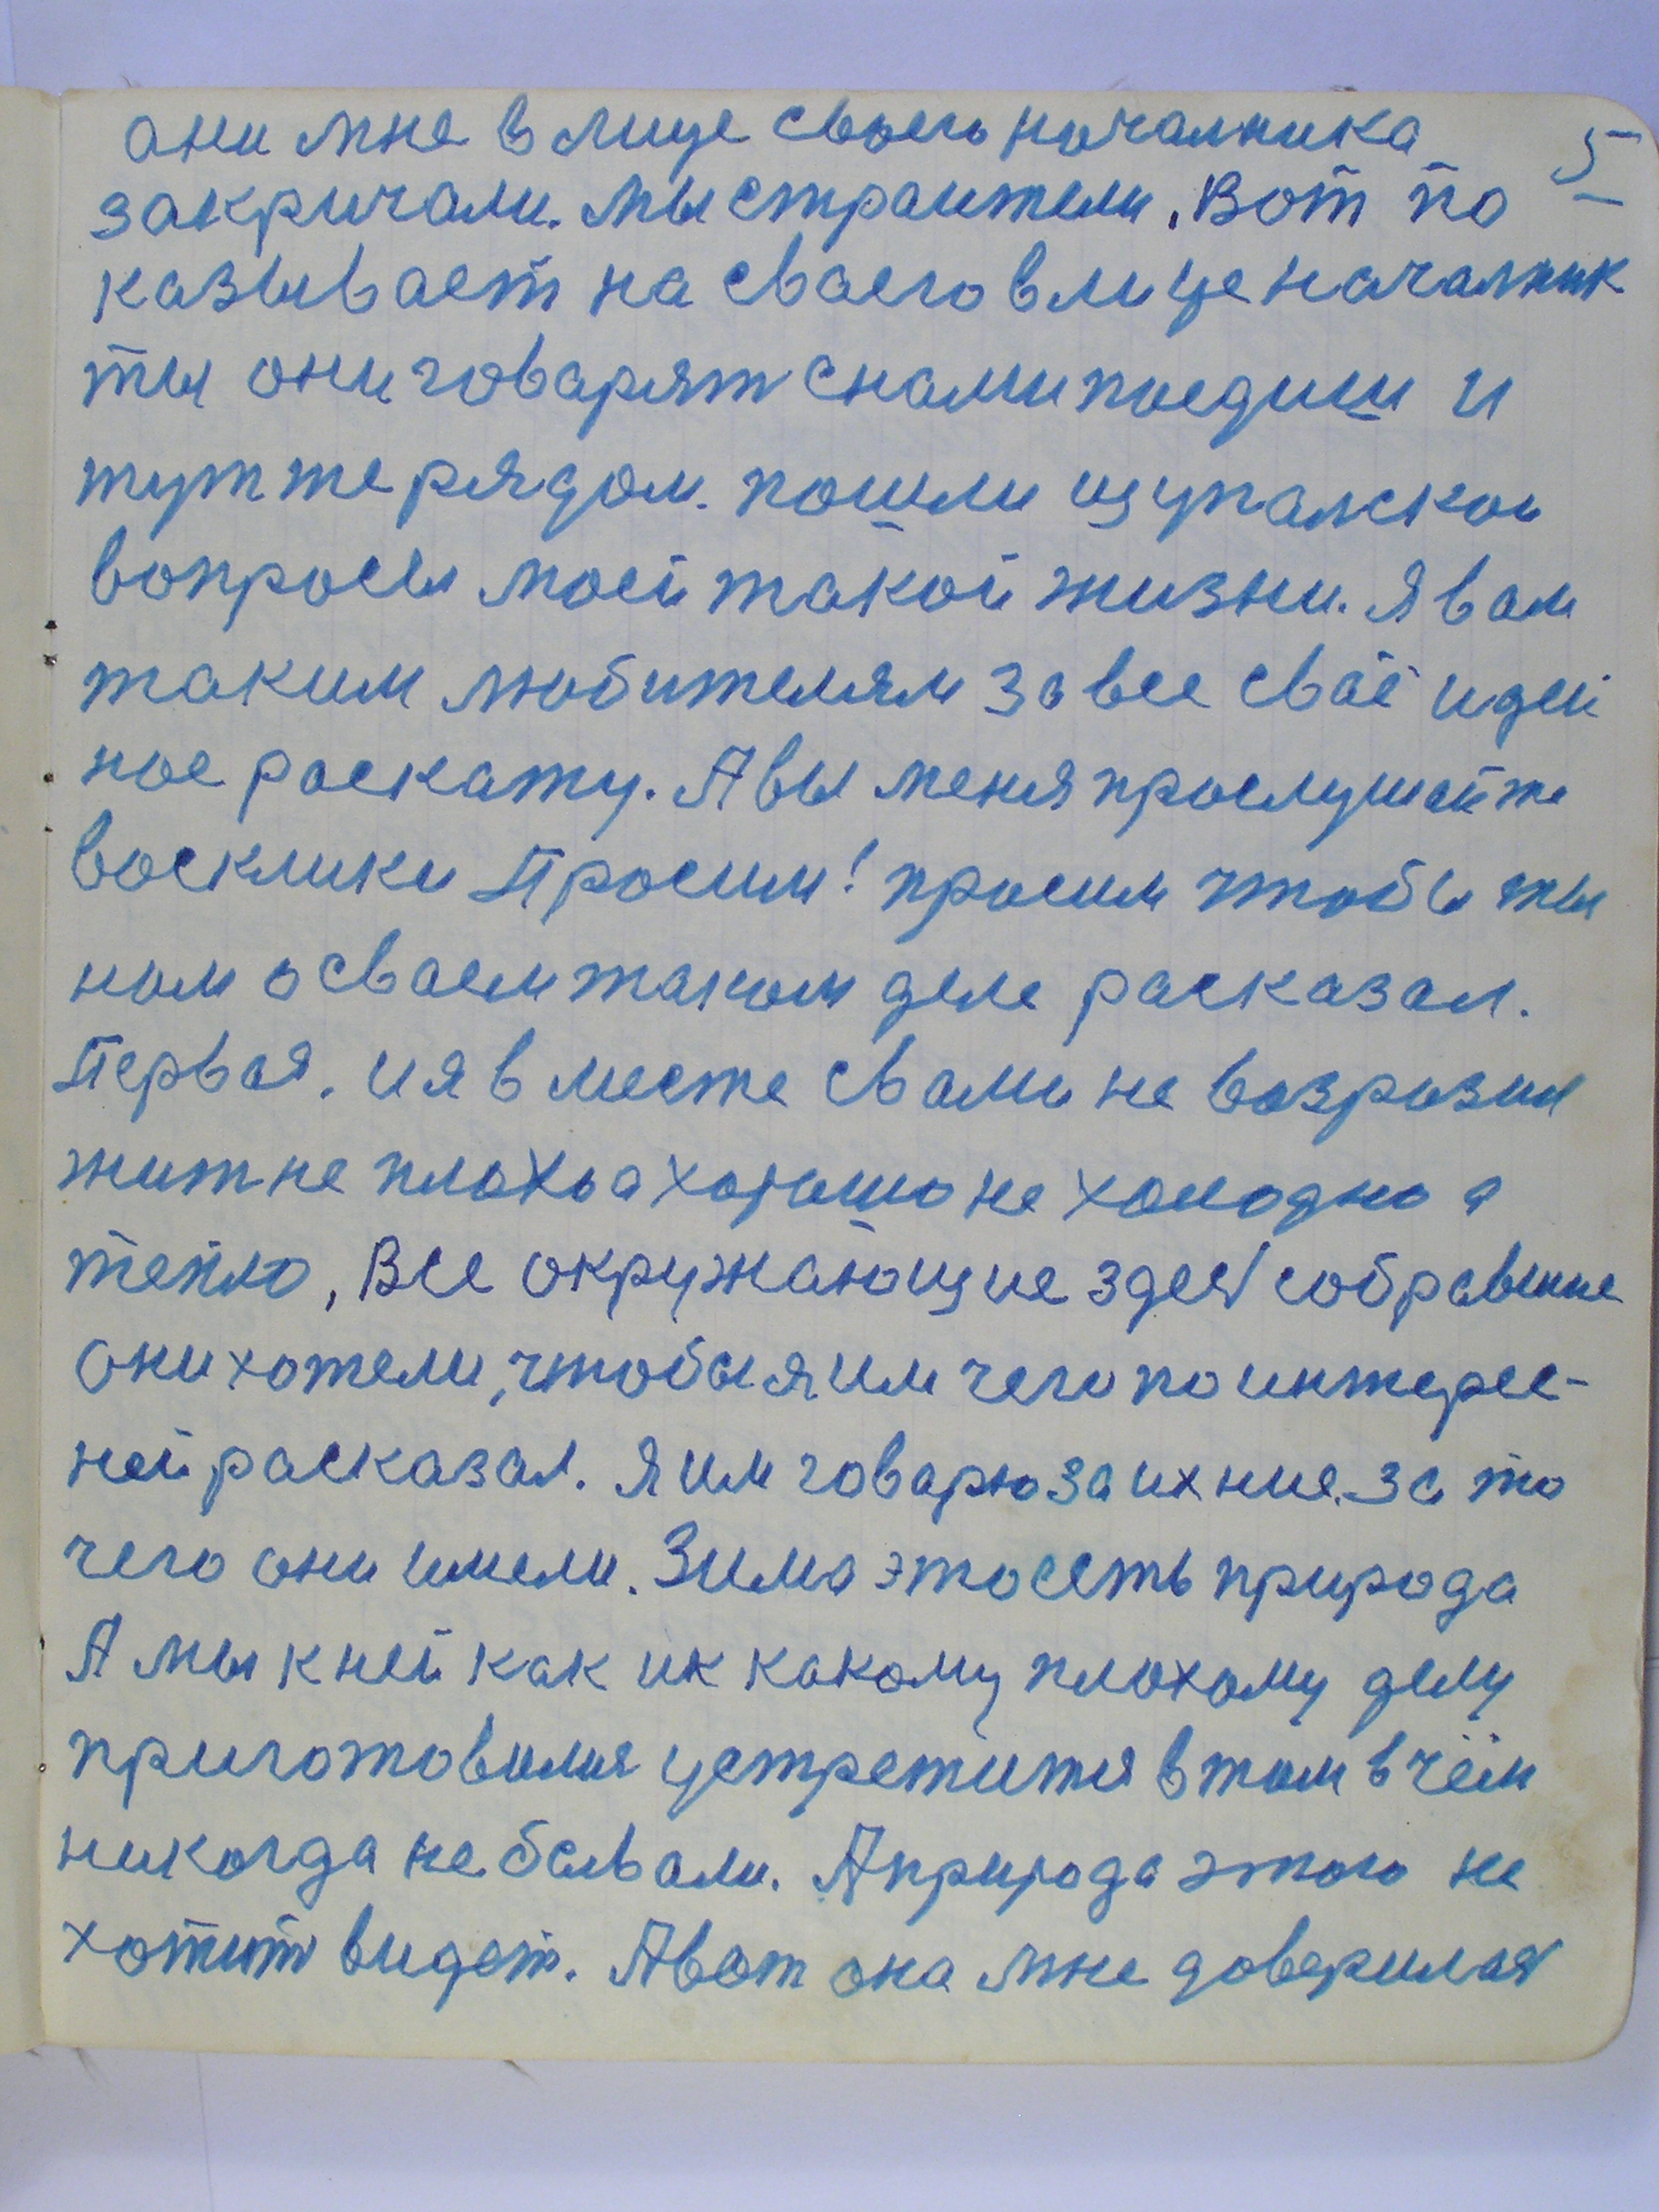 5
они мне в лице своего началника
закричали. мы страители. Вот по
казывает на сваего в лице началник
ты они говарят с нами поедиш и
тут же рядом. пошли щупалскои
вопросы моей такой жизни. Я вам
таким любителям за все сваё идей
ное раскажу. А вы меня прослушайте
восклики Просим! просим чтобы ты
нам о сваем таком деле расказал.
Первая. и я в месте с вами не возразил
жит не плохо а хорошо не холодно а
тепло, Все окружающие здес собравшие
они хотели, чтобы я им чего по интерес-
ней расказал. Я им говарю за ихние за то
чего они имели. Зима это есть природа
А мы к ней как и к какому плохому делу
приготовился устретится в том в чём
никогда не бывали. А природа этого не
хотит видет. А вот она мне доверилас